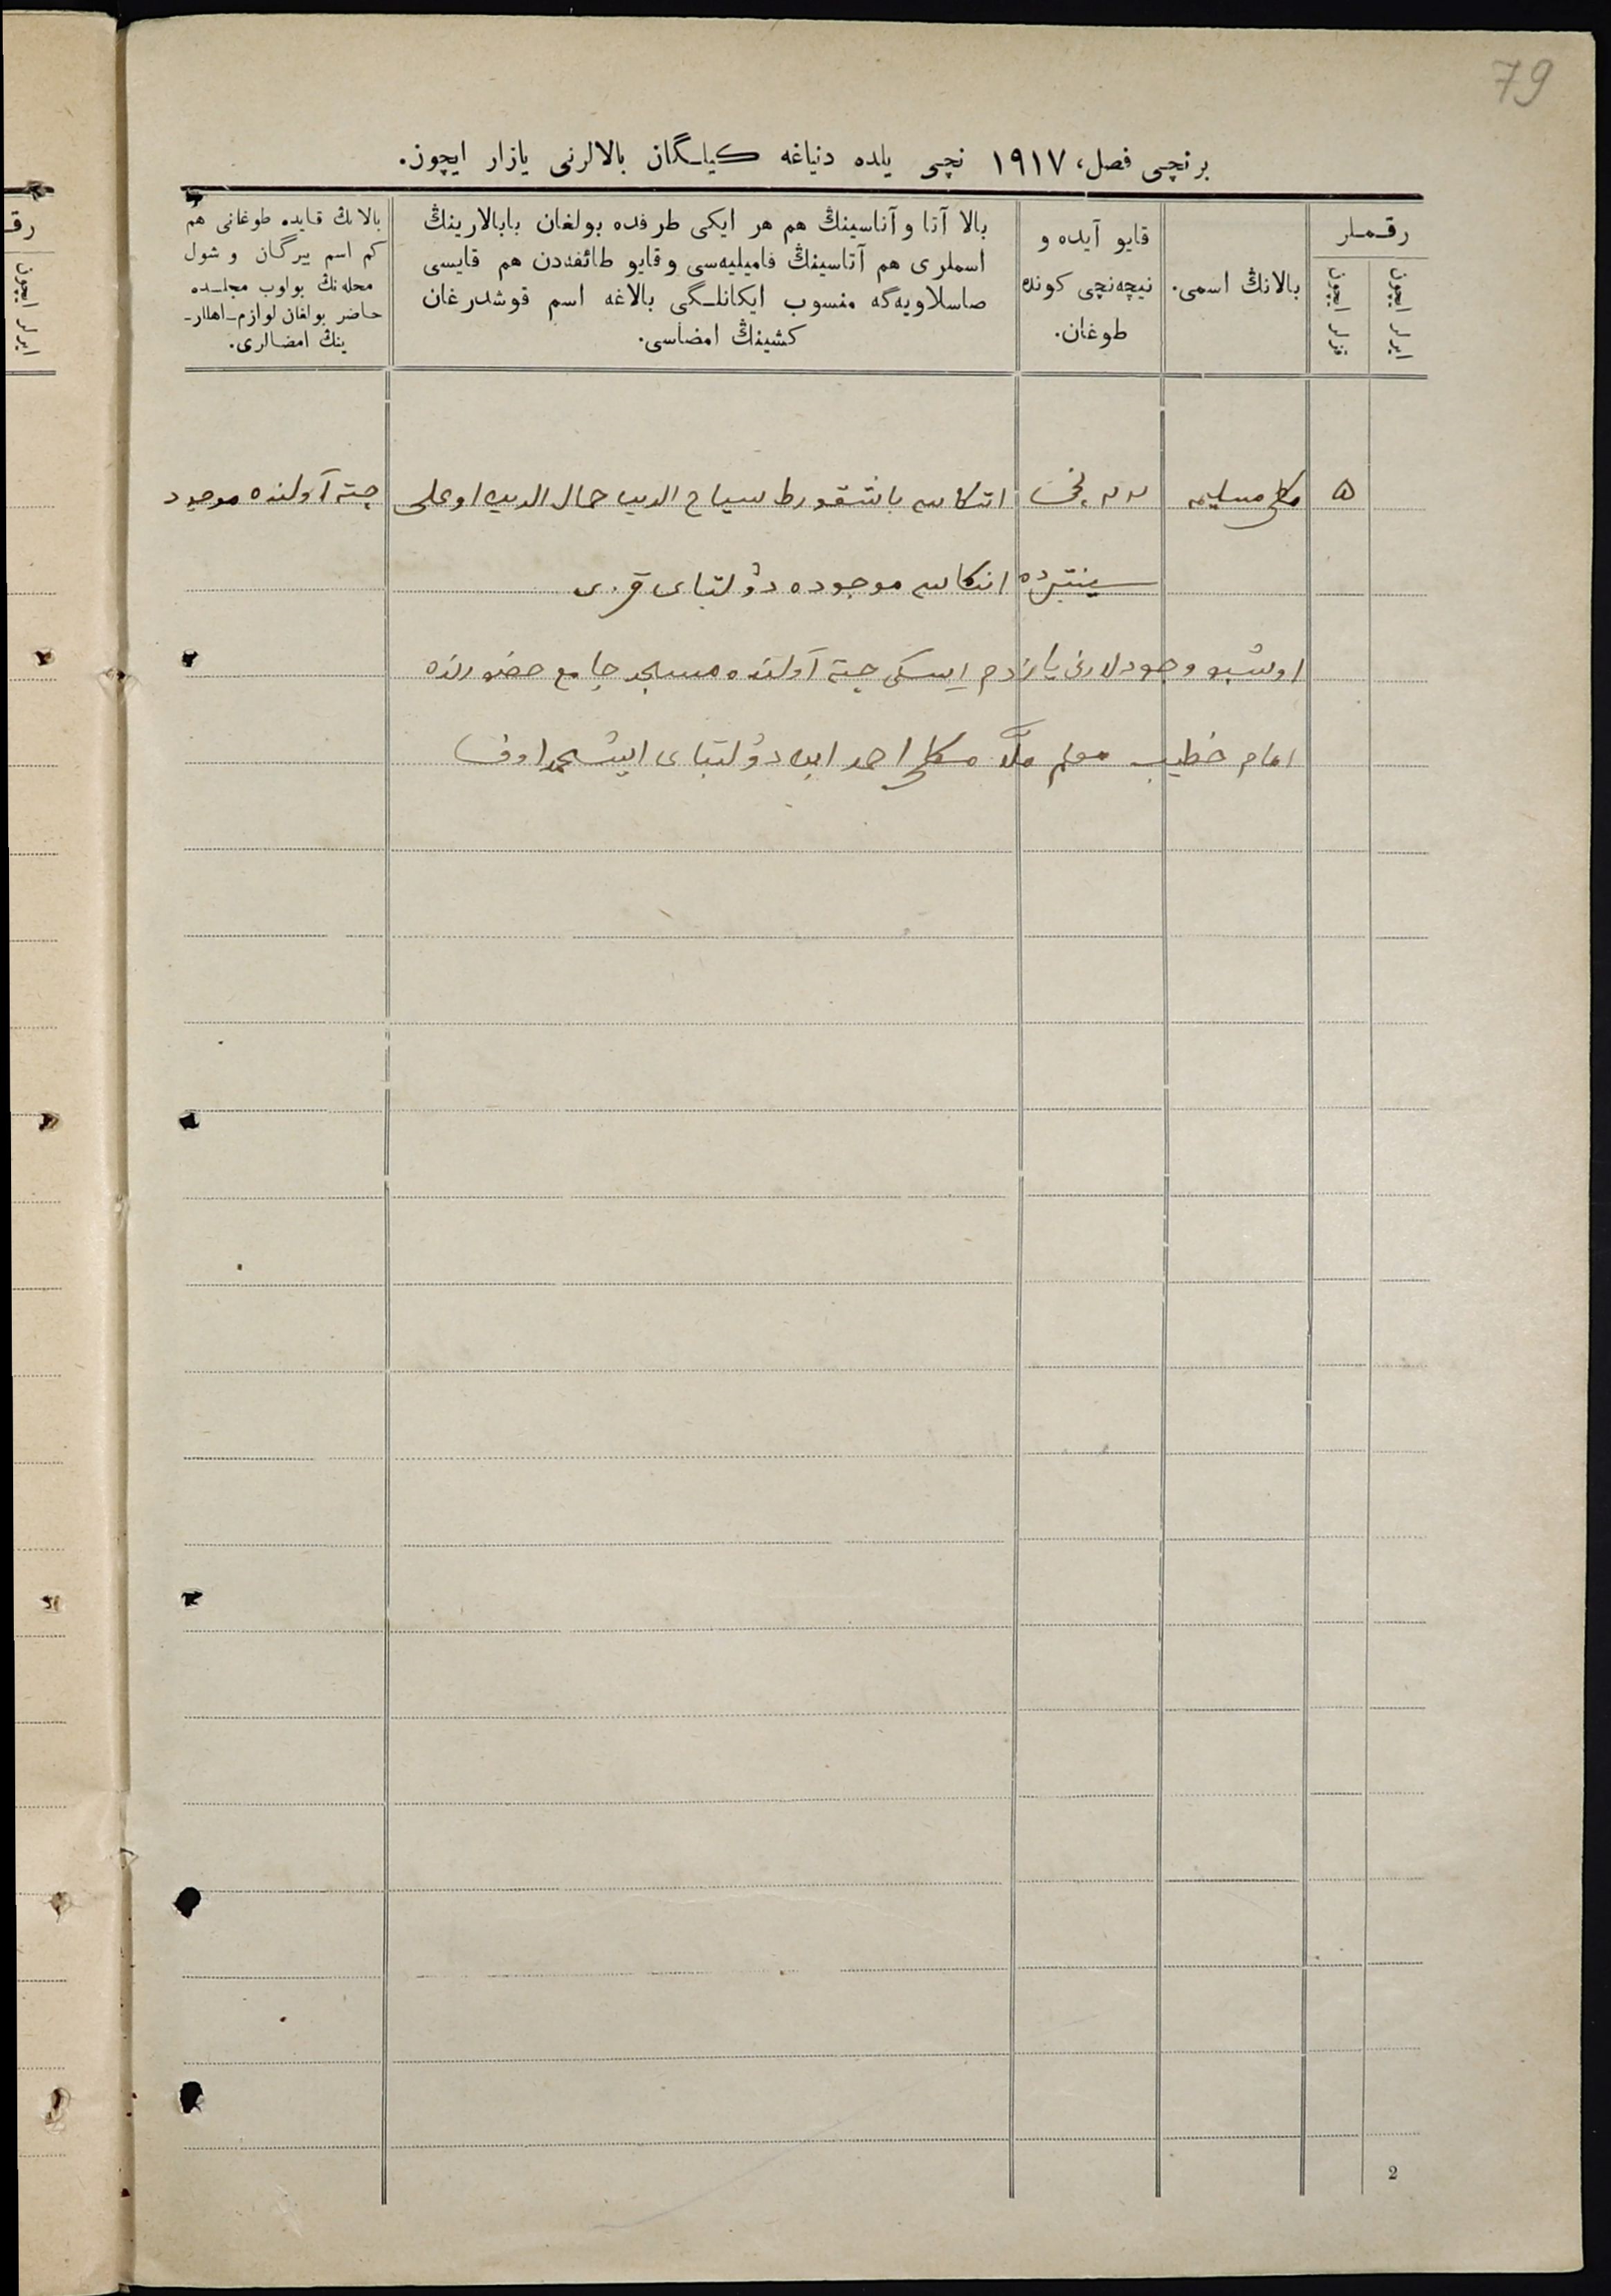 79
برنچی فصل، ۱۹۱۷ نچی یلده دنیاغه کیلگان بالالرنی یازار ایچون.
رقملر
ایرلر ایچون
قزلر ایچون
بالانڭ اسمی.
قایو آیده و
نیچه‌نچی کونده
طوغان.
بالا آتا و آناسینڭ هم هر ایکی طرفده بولغان بابالارینڭ
اسملری هم آتاسینڭ فامیلیه‌سی و قایو طائفه‌دن هم قایسی
صاسلاویه‌گه منسوب ایکانلگی بالاغه اسم قوشدرغان
کشینڭ امضاسی.
بالانڭ قایده طوغانی هم
کم اسم بیرگان و شول
محله‌نڭ بولوب مجلسده
حاضر بولغان لوازم اهللار-
ینڭ امضالری.
۵ مسلیمه اتکاسی باشقورط الدین جمال الدین اوغلی چته آولنده موجود
سینتبرده انکاسی موجوده دولتبای قزی
اوشبو وجودلارنی یازدم ایسکی چته آولنده مسجد جامع حضورنده
امام خطیب معلم ملا احمد ابن دولتبای
2